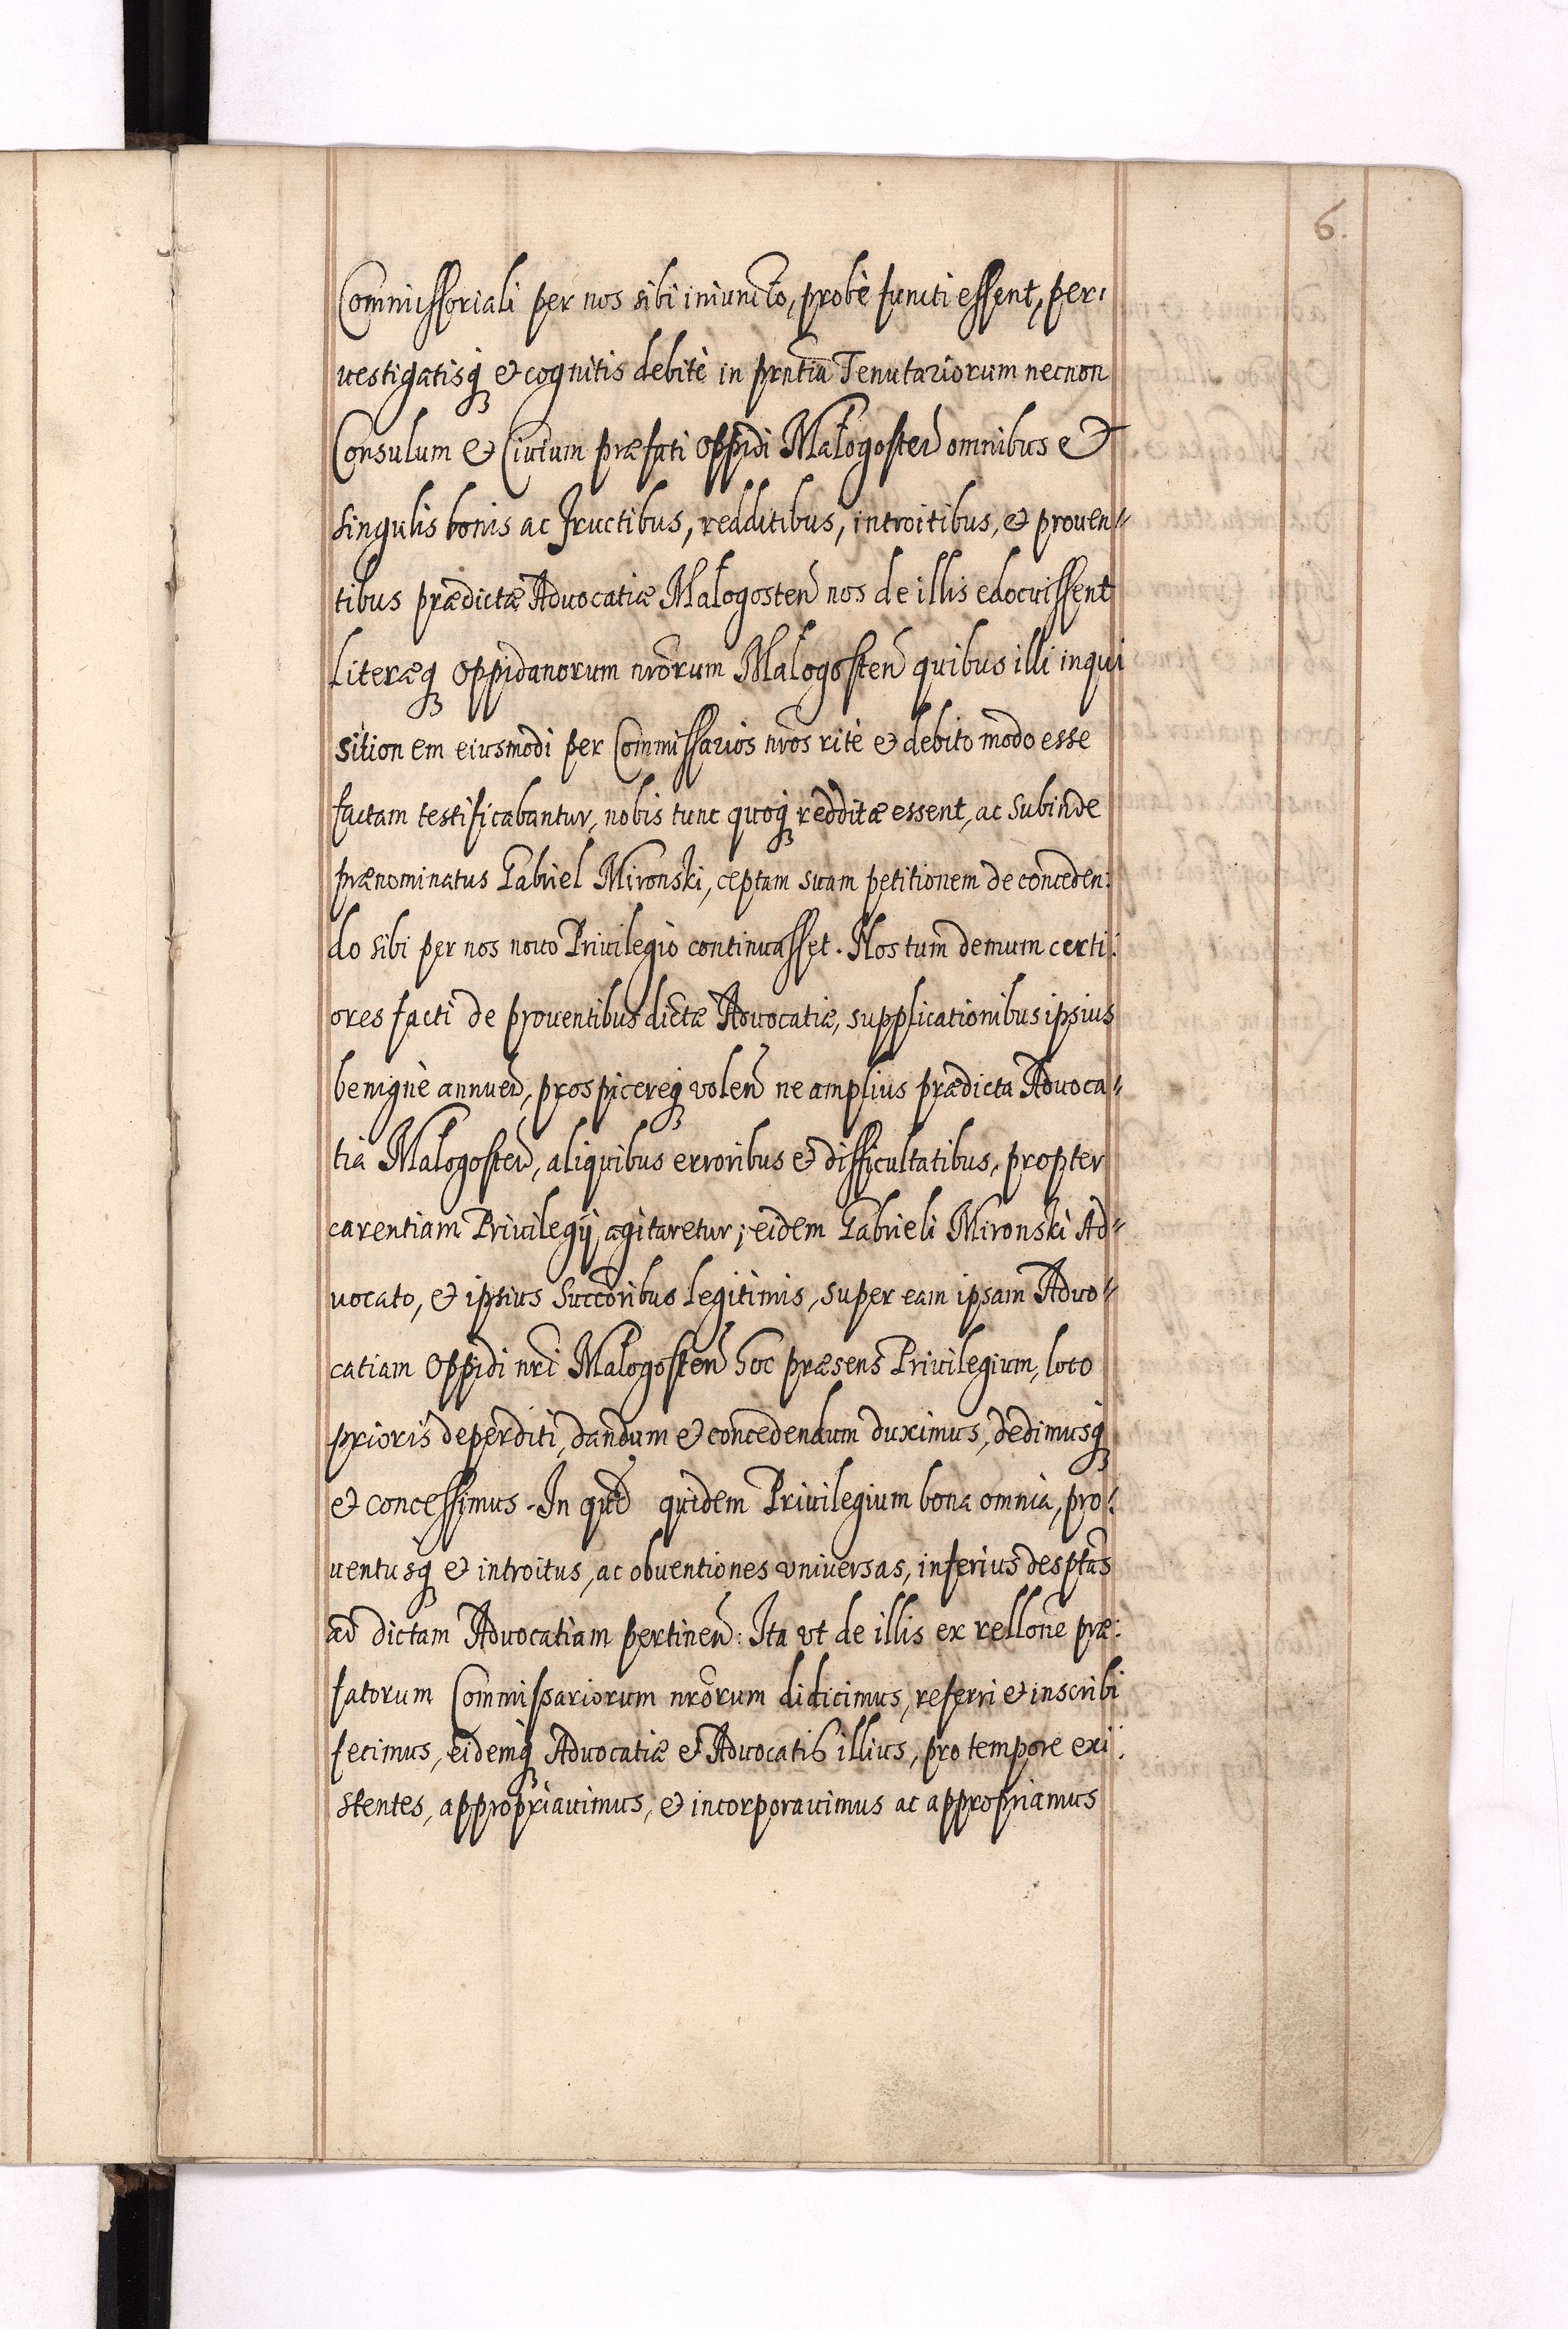 6.
Commissoriali per nos sibi iniuncto, probè functi essent, per,
uestigatisq̃ et cognitis debitè in prntia Tenutariorum necnon
Consulum et Ciuium præfati Oppidi Małogosten̄ omnibus et
singulis bonis ac fructibus, redditibus, introitibus, et prouen„
tibus prædictæ Aduocatiæ Małogosten̄ nos de illis edocuissent
Literæq̃ Oppidanorum nrõrum Małogosten̄ quibus illi inqui
sitionem eiusmodi per Commissarios nrõs ritè et debito modo esse
factam testificabantur, nobis tunc quoq̃ redditæ essent, ac subinde
prænominatus Gabriel Mironski, ceptam suam petitionem de conceden:
do sibi per nos nouo Priuilegio continuasset. Nos tum demum certi:
ores facti de prouentibus dictæ Aduocatiæ, supplicationibus ipsius
benignè annuen̄, prospicereq̃ volen̄ ne amplius prædicta Aduoca„
tia Małogosten̄, aliquibus erroribus et difficultatibus, propter
carentiam Priuilegij agitaretur; eidem Gabrieli Mironski Ad„
uocato, et ipsius Succõribus legitimis, super eam ipsam Aduo„
catiam Oppidi nri Małogosten̄ hoc præsens Priuilegium, loco
prioris deperditi, dandum et concedendum duximus, dedimusq̃
et concessimus. In quod quidem Priuilegium bona omnia, pro:
uentusq̃ et introitus, ac obuentiones vniuersas, inferius desptas
ad dictam Aduocatiam pertinen̄: Ita vt de illis ex rellõne præ:
fatorum Commissariorum nrõrum didicimus, referri et inscribi
fecimus, eidemq̃ Aduocatiæ et Aduocatis illius, pro tempore exi:
stentes, appropriauimus, et incorporauimus ac appropriamus